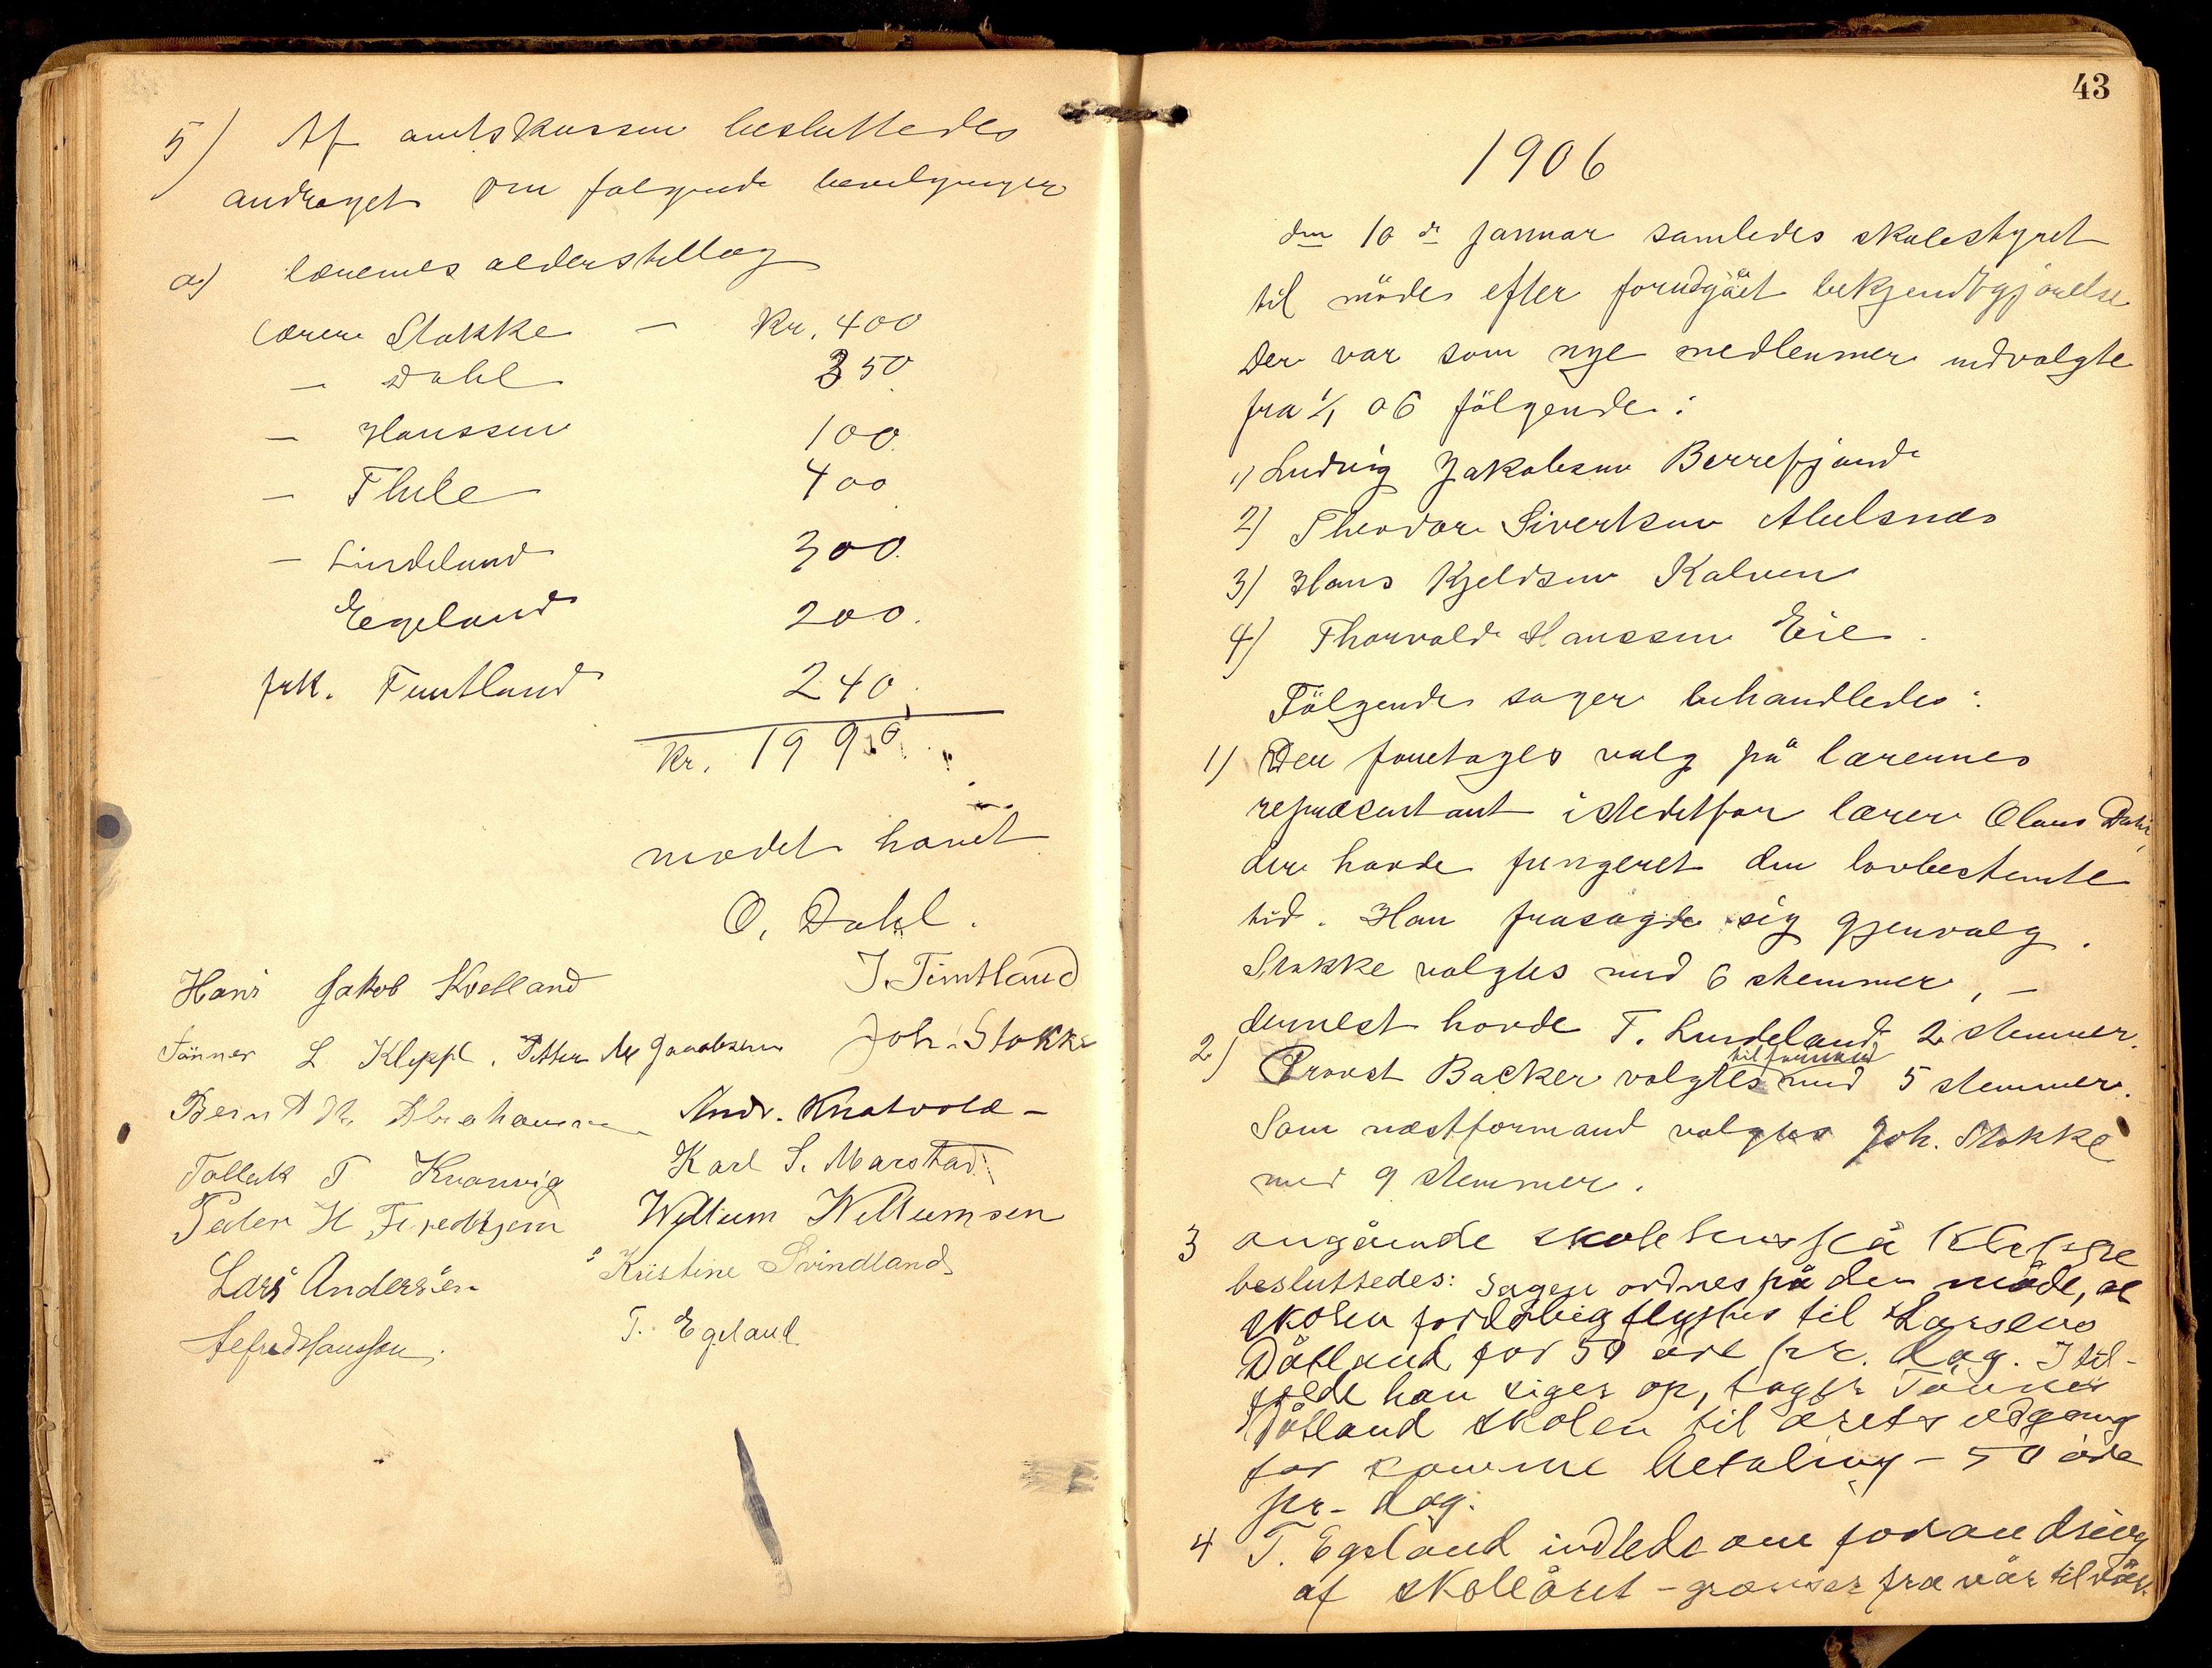 5) Af amtskassen besluttedes
andraget om følgende bevilgninger
a) lærernes alderstillæg
lærer Stokke — Kr. 400
— Dahl 350
— Hanssen 100
— Thule 400
— Lindeland 300
Egeland 200.
frk. Funtland 240
Kr. 1990
mødet hævet
O. Dahl.
J. Timtland
Hans Jakob Kvelland
Tønnes L Kleppe. Petter M Jacobsen Joh. Stokke
Bernt R. Abrahamsen Andr. Knatvold –
Tollak T Kvanvig Karl S. Marstad
Peder H Willum Willumsen
Lars Andersen Kristine Svindland
Alfred Hanssen. T. Egeland.
43
1906
den 10de januar samledes skolestyret
til møde efter forudgået bekjendtgjørelse
Der var som nye medlemmer udvalgte
fra 1/1 06 følgende:
1) Ludvig Jakobsen Berrefjord
2) Theodor Sivertsen Abelsnæs
3) Hans Kjeldsen Kalven
4) Thorvald Hanssen Eie.
Følgende sager behandledes:
1) Der foretages valg på lærernes
repræsentant istedetfor lærer Olaus Dahl,
der havde fungeret den lovbestemte
tid. Han frasagde sig gjenvalg.
Stokke valgtes med 6 stemmer, –
dernest havde T. Lindeland 2 stemmer.
2) Provst Backer valgtes til formand med 5 stemmer.
Som næstformand valgtes Joh. Stokke
med 9 stemmer.
3 angående skolehus på Kleppe
besluttedes: Sagen ordnes på den måde, at
skolen forløbig flyttes til Larsens
Dåtland for 50 øre pr. dag. I til-
fælde han siger op, tager Tønnes
Dåtland skolen til årets udgang
for samme betaling – 50 øre
pr. dag.
4 T. Egeland indleder om forandring
af skoleåret – grænser fra vår til vår.